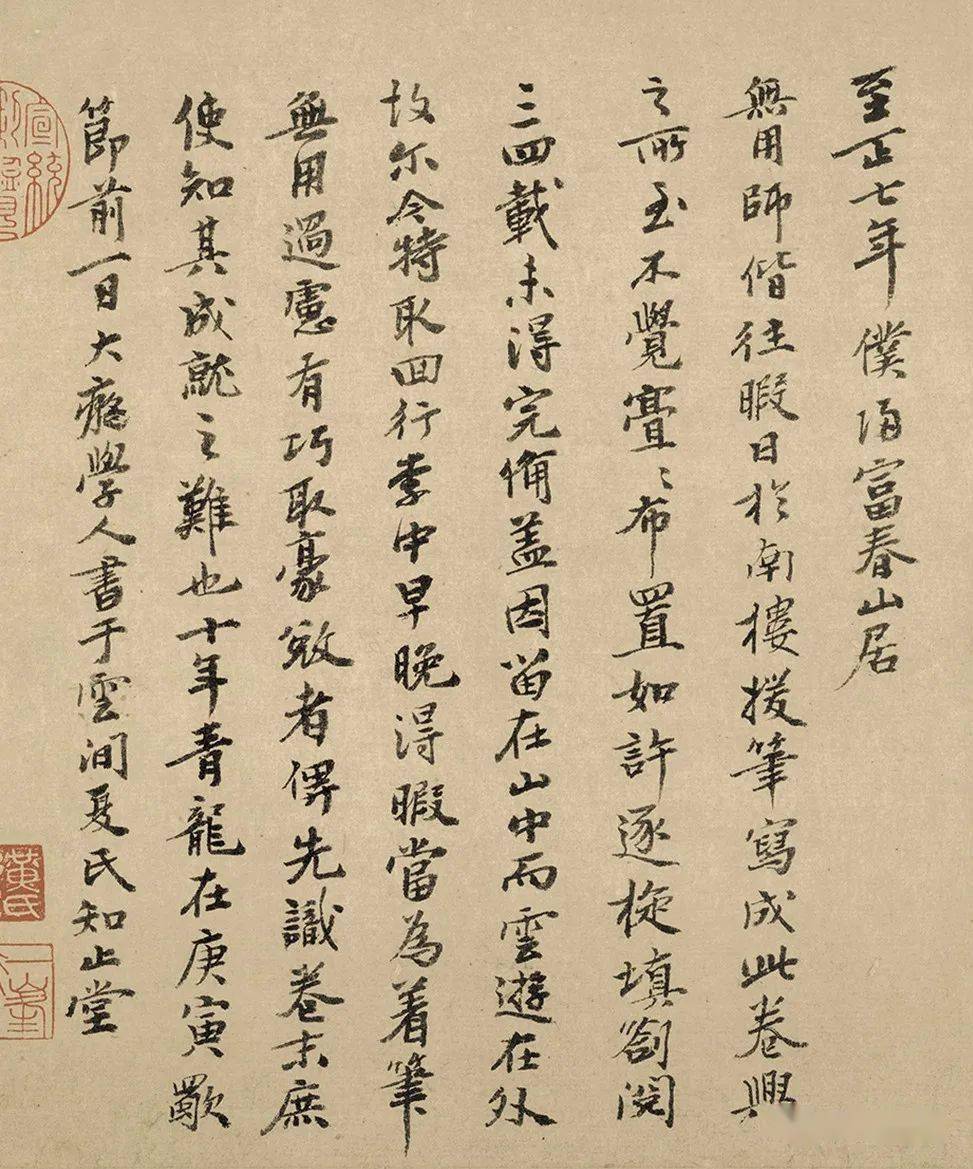 至正七年僕歸富春山居
無用師偕往暇日於南樓援筆寫成此卷興
之所至不覺亹〻布置如許逐旋填劄閱
三四載未得完備盖因留在山中而雲遊在外
故尔今特取回行李中早晚得暇當為着筆
無用過慮有巧取豪敚者俾先識卷末庶
使知其成就之難也十年青龍在庚寅歜
節前一日大癡學人書于雲間夏氏知止堂
宣統
黃氏
一峯